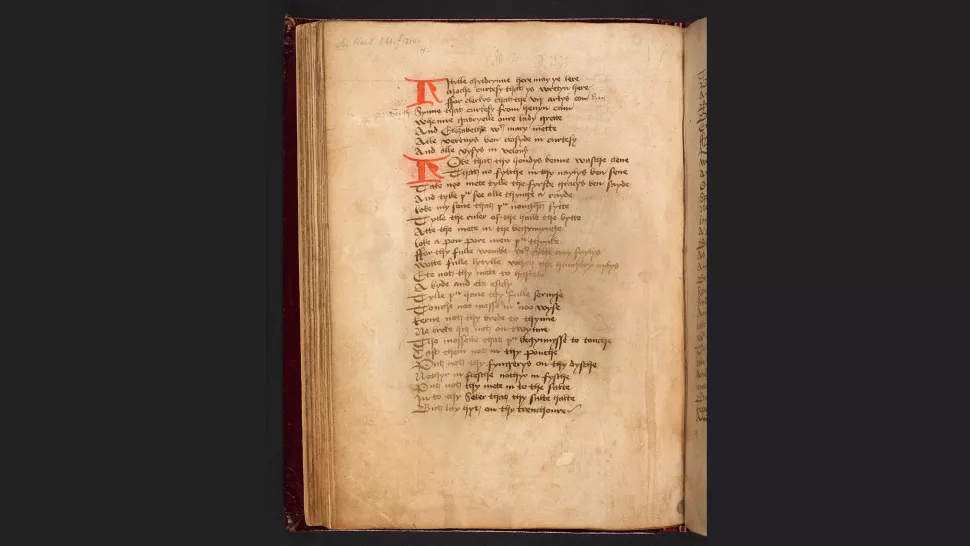 Lytylle chyldrynne here may ye lere
Moche curtesy that ys wrytyn here
ffor clerkys that the vij artys
Synne that curtesy from hevyn cam
Whenne gabryelle oure lady grette
And Elizabeth wt mary mette
Alle vertuys ben closyde in curtesy
And alle vysys in velony
Loke that thy hondys benne wasche clene
That no fylthe in thy naylys ben sene
Take noo mete tylle the fyrste gracys ben sayde
And tylle þu see alle thynge arayde
Loke my sone that þu nought sytte
Tylle the ruler of the halle the bytte
Atte the mete in the begynnynge
Loke a pon pore men þu thynke
ffor thy fulle wombe
Wotte fulle lytylle
Ete not thy mete to hastely
A byde and ete esyly
Tylle þu have thy fulle servyse
Touche noo messe in noo wyse
Kerne noth thy brede to thynne
Ne breke hit noth on twynne
The mosselle that þu begynnysse to touche
Cast them noth in thy pouche
Put noth thy fyngerys on thy dysche
Nothyr in flesche nothyr in fysche
Put noth thy mete in to the salte
In to thy Seler that thy salte halte
But lay hyt on thy trenchoure